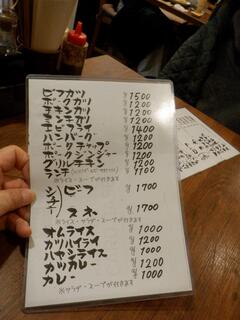 ビフカツ ¥1500
ポークカツ ¥1200
チキンカツ ¥1200
ミンチカツ ¥1100
エビフライ ¥1400
ハンバーグ ¥1200
ポークチャップ ¥1200
ポークジンジャー ¥1200
グリルチキン ¥1200
ランチ ¥1100
※ライス・スープが付きます
シチュー ビーフ ¥1700
タネ ¥1700
※ライス・サラダ・スープが付きます
オムライス ¥1000
カツハイライ ¥1200
ハヤシライス ¥1000
カツカレー ¥1200
カレー ¥1000
※サラダ・スープが付きます